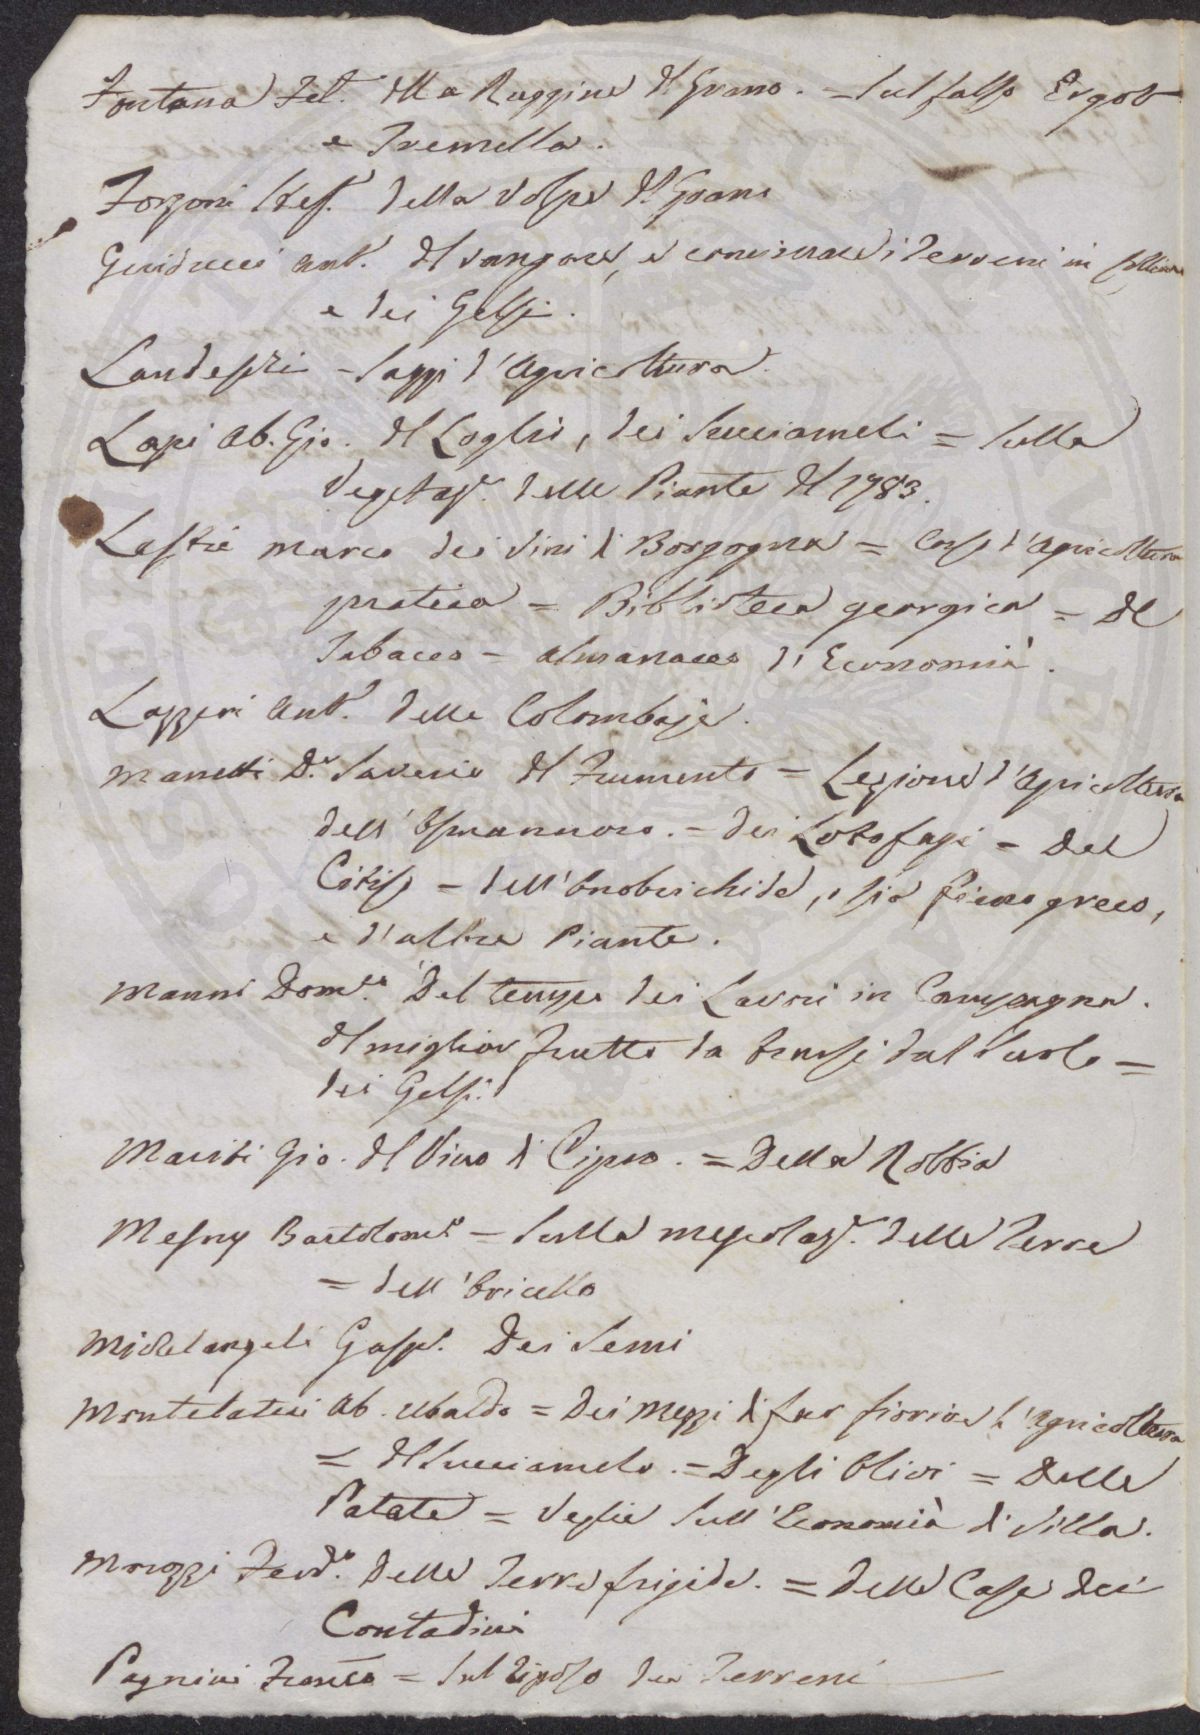 Fontana Fel. della Ruggine del Grano. = Sul falso Ergot
e Tremella.
Forzoni Stef. della Volpe del Grano
Guiducci Ant. del vangare, e concimare i Terreni in Collina
e dei Gelsi.
Landeschi - Saggi d'Agricoltura.
Lapi Ab. Gio. del Loglio, dei Succiameli = Sulla
Vegetaz.e delle Piante del 1783.
Lastri Marco dei Vini di Borgogna = Corso d'Agricoltura
pratica = Biblioteca georgica = Del
Tabacco = Almanacco di Economia.
Lazzeri Ant. delle Colombaje.
Manetti D.r Saverio del Frumento = Lezione d'Agricoltura
dell'Osmannoro. = Dei Lotofagi = Del
Citiso = dell'Onobrichide, o sia fieno greco,
e d'altre Piante.
Manni Dom.co Del tempo dei Lavori in Campagna.
del miglior frutto da trarsi dal Suolo =
dei Gelsi.
Mariti Gio. del Vino di Cipro. = Della Robbia
Mesny Bartolom.o = Sulla mescolaz.e delle Terre
= dell'Oricello
Michelangeli Gasp. Dei Semi
Montelatici Ab. Ubaldo = Dei mezzi di far fiorire l'Agricoltura
= del Succiamelo. = Degli Olivi = Delle
Patate = Veglie Sull'Economia di Villa.
Morozzi Ferd.o Delle Terre frigide. = delle Case dei
Contadini
Pagnini Franc.o = Sul riposo dei Terreni